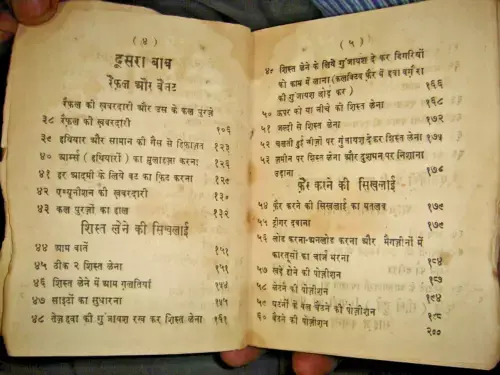 ( ४ )
दूसरा बाब
रैफ़ल और बैनट
रैफ़ल की ख़बरदारी और उस के कल पुरज़े
३८ रैफ़ल की ख़बरदारी १०६
३९ हथियार और सामान की गैस से हिफ़ाज़त १२३
४० आर्म्स (हथियारों) का मुलाहज़ा करना १२५
४१ हर आदमी के लिये बट का फ़िट करना १२९
४२ एम्यूनीशन की ख़बरदारी १३०
४३ कल पुरज़ों का हाल १३२
शिस्त लेने की सिखलाई
४४ आम बातें १५१
४५ ठीक २ शिस्त लेना
४६ शिस्त लेने में आम ग़लतियां
४७ साइटों का सुधारना
४८ तेज़ हवा की गुंजायश रख कर शिस्त लेना १६१
( ५ )
४९ शिस्त लेने के लिये गुंजायश दे कर डिगरियों
को काम में लाना (कलक्टिव फ़ैर में हवा वग़ैरा
की गुंजायश छोड़ कर) १६५
५० ऊपर को या नीचे की शिस्त लेना १६८
५१ जल्दी से शिस्त लेना
५२ चलती हुई चीज़ों पर गुंजायश देकर शिस्त लेना १७५
५३ ज़मीन पर शिस्त लेना और दुशमन पर निशाना
उड़ाना १७८
फ़ैर करने की सिखलाई
५४ फ़ैर करने की सिखलाई का मतलब १७९
५५ ट्रीगर दबाना १७९
५६ लोड करना-अनलोड करना और मैगज़ीनों में
कारतूसों का चार्ज भरना १८४
५७ खड़े होने की पोज़ीशन
५८ लेटने की पोज़ीशन १९४
५९ घुटनों के बल बैठने की पोज़ीशन १९८
६० बैठने की पोज़ीशन २००